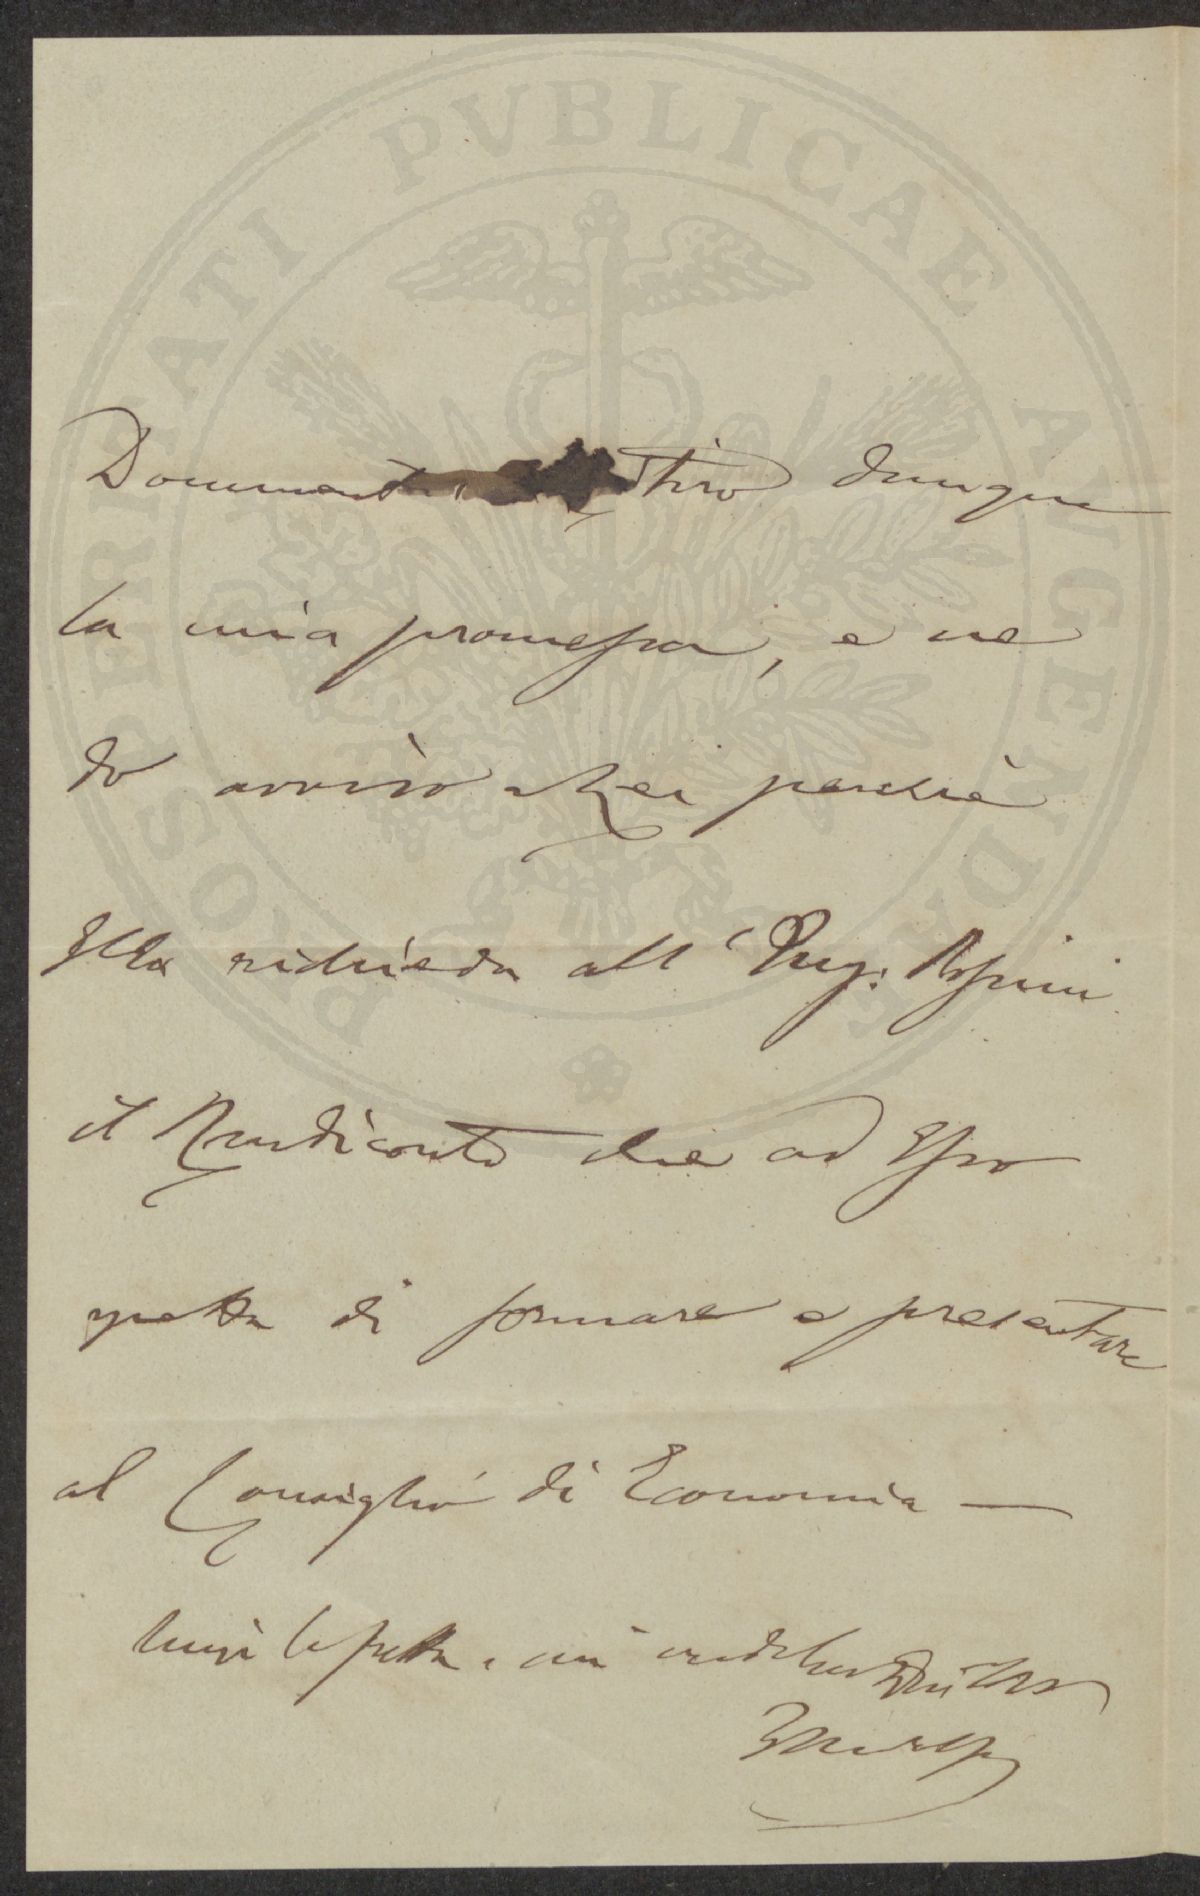 PROSPERITATI PVBLICAE AVGENDAE
Documenti tiro dunque
la mia promessa, e ne
do avviso a Lei perchè
Ella richieda all' Ing:
il Rendiconto che ad Esso
spetta di formare e presentare
al Consiglio di Economia —